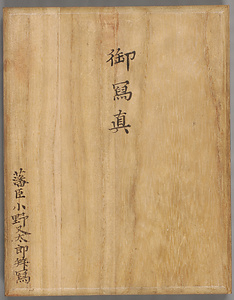 御寫真
藩臣小野又太郎拜寫